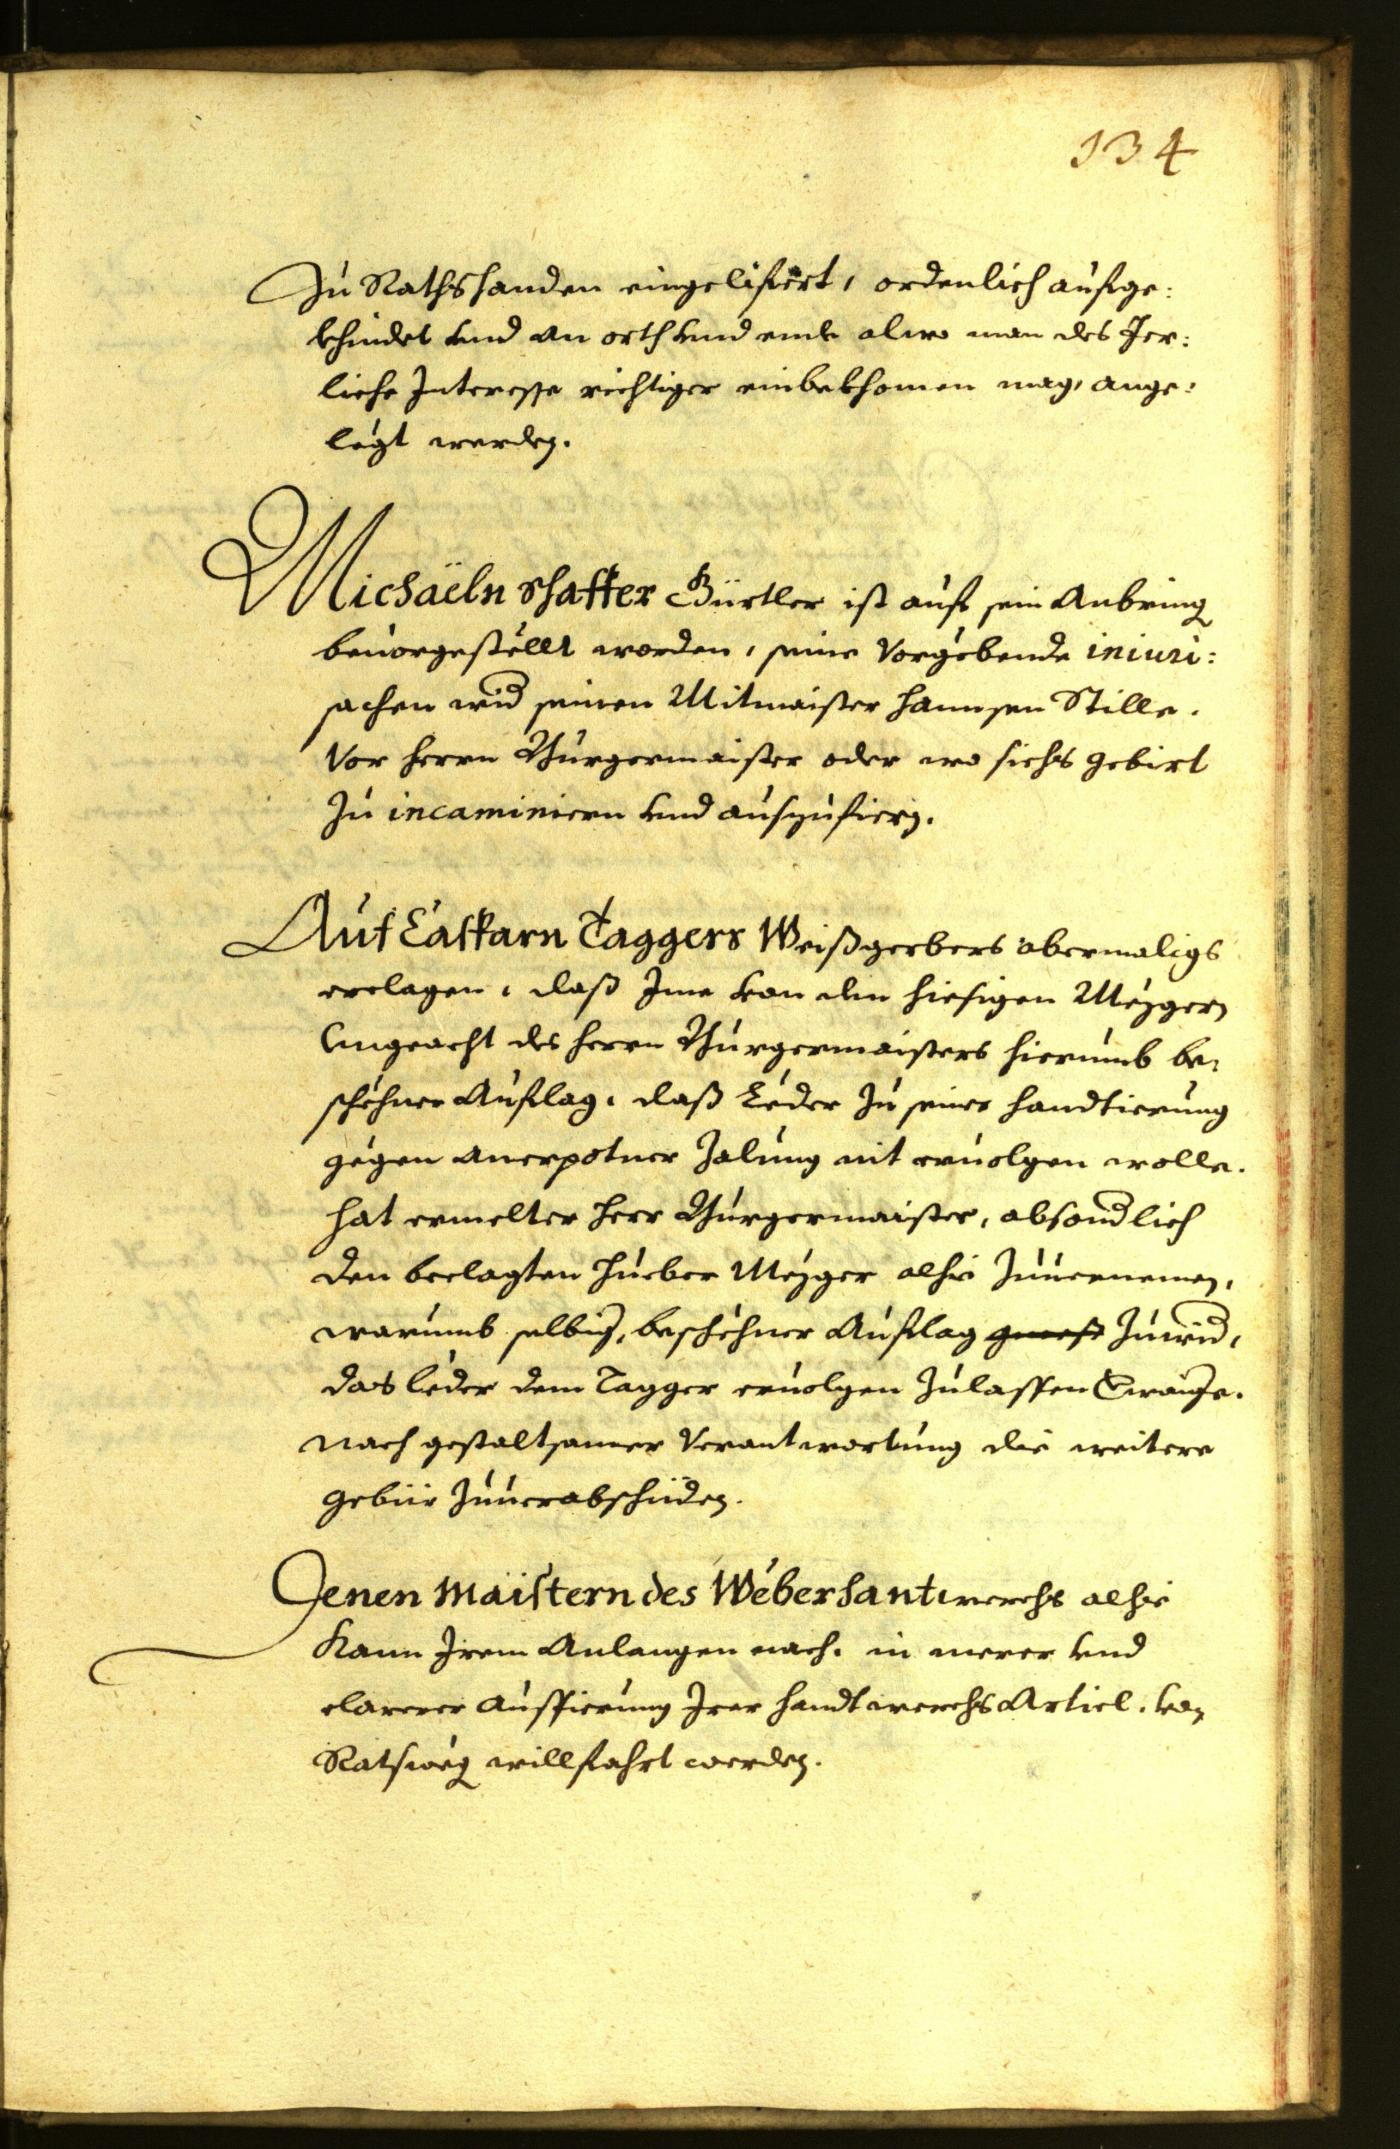 134
Zu Rathshanden eingelifert, ordenlich aufge:
khindet vnd an orth vnd ende alwo man des Jer:
liche Interesse richtiger einbekhomen mag, ange:
legt werden.
Michaëln Schaffer Gürtler ist auf sein Anbring
beuorgestellt worden, seine Vorgebende iniuri:
sachen wid seinen Mitmaister Hannsen Stille.
Vor Herrn Burgermaister oder wo sichs gebirt
Zu incaminiern vnd auszufiern.
Auf Casparn Taggers Weißgerbers abermaligs
erclagen, daß Jme von den hiesigen Mezgern
Vngeacht des Herrn Burgermaisters hierumb be:
schehner Auflag, daß Leder Zu seiner handtierung
gegen anerpotner Zalung nit eruolgen wolle.
hat ermelter Herr Burgermaister, absondlich
den beclagten Hueber Mezger alhie Zuuernemen,
warumb selbiger, beschehner Auflag Zuwid,
das leder dem Tagger eruolgen Zulassen
nach gestaltsamer Verantwortung die weitere
gebür Zuuerabschiden.
Jenen Maistern des Weberhantwerchs alhie
Kann Jrem Anlangen nach, in merer vnd
clarerer Ausfierung Jrer Handtwerchs Articl, von
Ratsweg willfahrt werden.